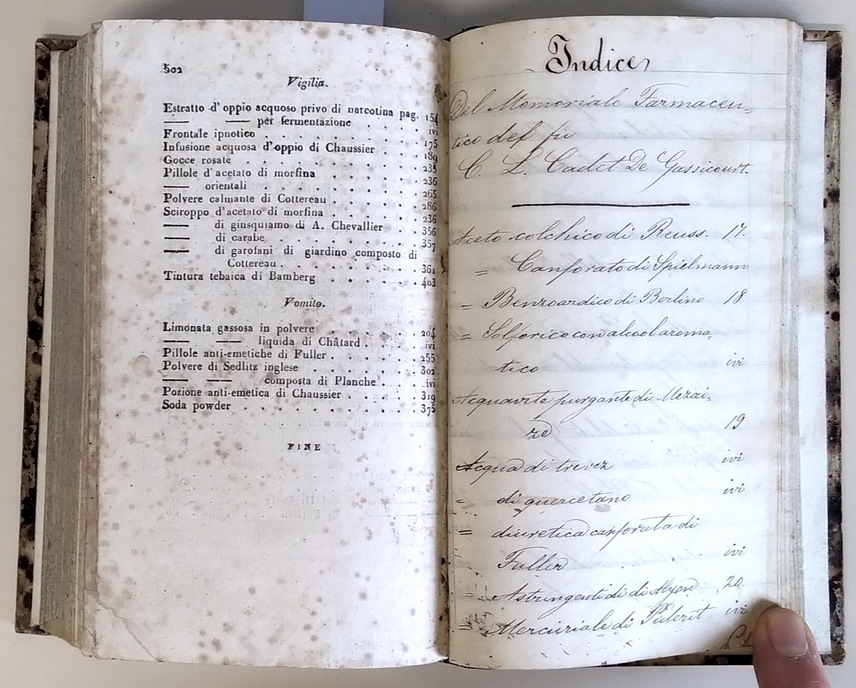 502
Vigilia.
Estratto d'oppio acquoso privo di narcotina pag. 154
—— —— per fermentazione . . . . . ivi
Frontale ipnotico . . . . . . . . 175
Infusione acquosa d'oppio di Chaussier . . . . 189
Gocce rosate . . . . . . . . 235
Pillole d'acetato di morfina . . . . . . 236
—— orientali . . . . . . . . 265
Polvere calmante di Cottereau . . . . . 286
Sciroppo d'acetato di morfina . . . . . . 236
—— di giusquiamo di A. Chevallier . . . 356
—— di carabe . . . . . . . 357
—— di garofani di giardino composto di
Cottereau . . . . . . . 361
Tintura tebaica di Bamberg . . . . . . 403
Vomito.
Limonata gassosa in polvere . . . . . . 204
—— —— liquida di Châtard . . . . . ivi
Pillole anti-emetiche di Fuller . . . . . . 255
Polvere di Sedlitz inglese . . . . . . . 302
—— —— composta di Planche . . . . ivi
Pozione anti-emetica di Chaussier . . . . . 319
Soda powder . . . . . . . . . 375
FINE
Indice
Del Memoriale Farmaceu-
tico del fu
C. L. Cadet De Gassicourt.
Aceto colchico di Reuss. 17.
= Canforato di Spielmann
= Benzoardico di Berlino 18
= Solforico con alcool aroma-
tico ivi
Acquavite purgante di Mezai-
ze 19
Acqua di trevez ivi
= di quercetano ivi
= diuretica canforata di
Fuller ivi
= Astringenti di 20
= Mercuriale di ivi